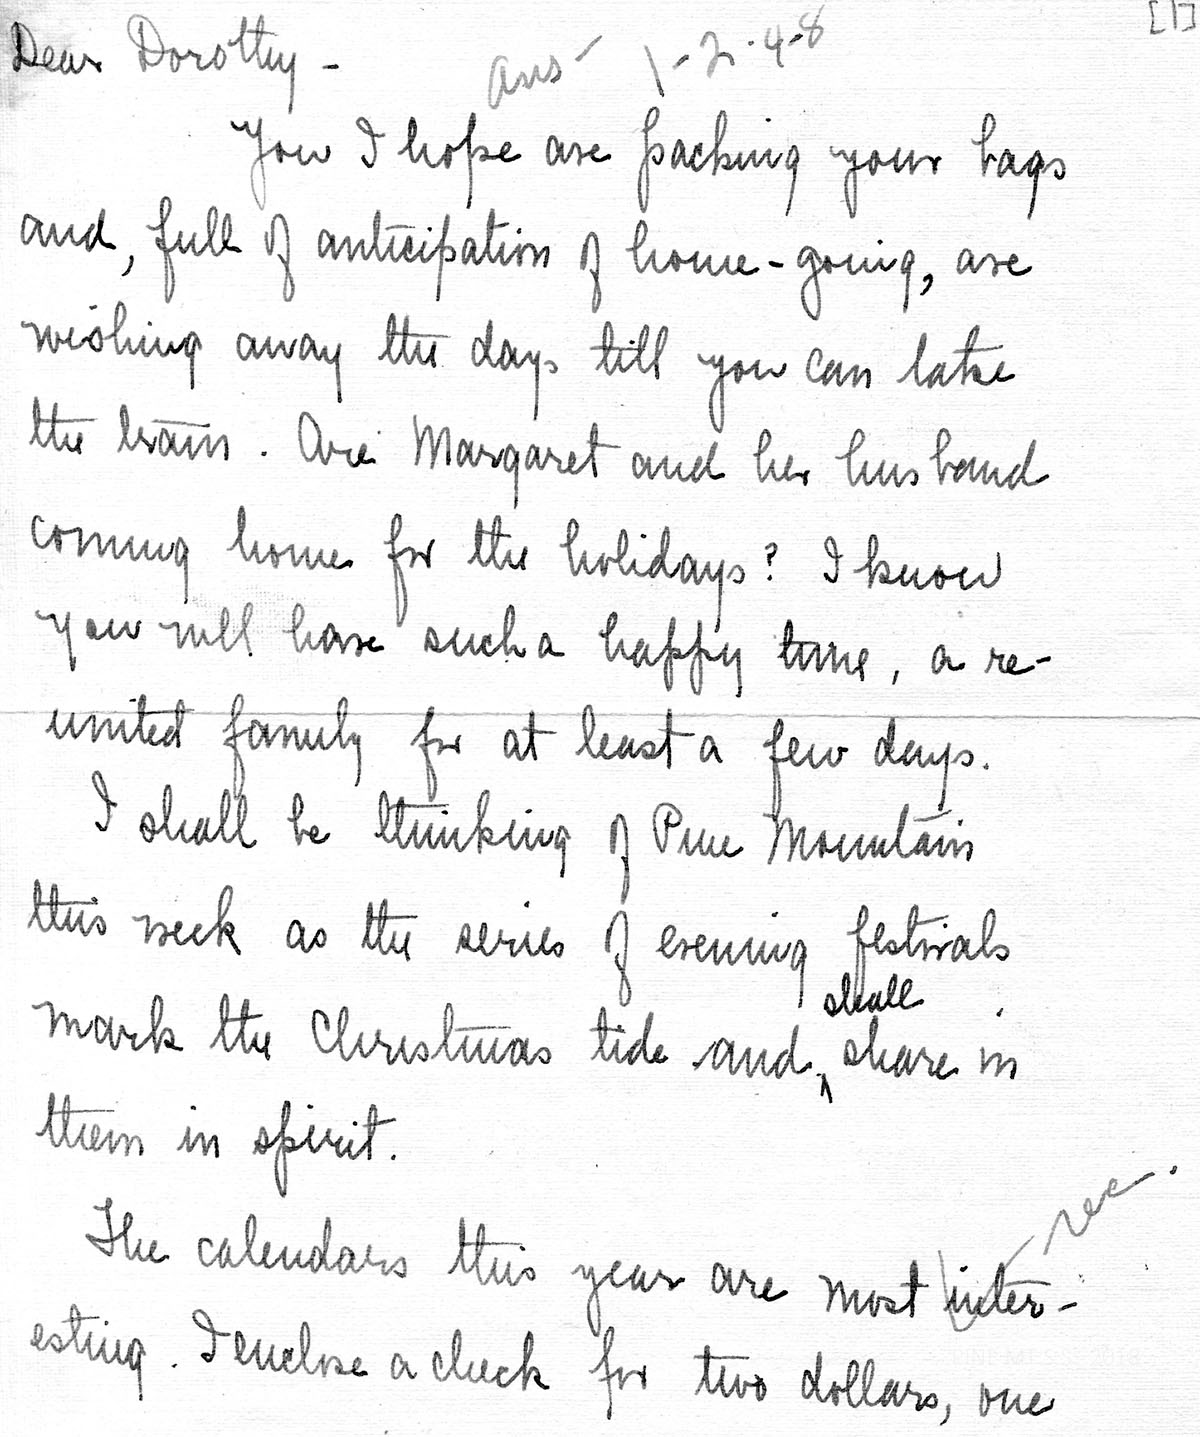 [1]
Dear Dorothy -
ans - 1-2-48
You I hope are packing your bags
and, full of anticipation of home-going, are
wishing away the days till you can take
the train. Are Margaret and her husband
coming home for the holidays? I know
you will have such a happy time, a re-
united family for at least a few days.
I shall be thinking of Pine Mountain
this week as the series of evening festivals
shall
mark the Christmas tide and ^ share in
them in spirit.
rec.
The calendars this year are most inter-
esting. I enclose a check for two dollars, one